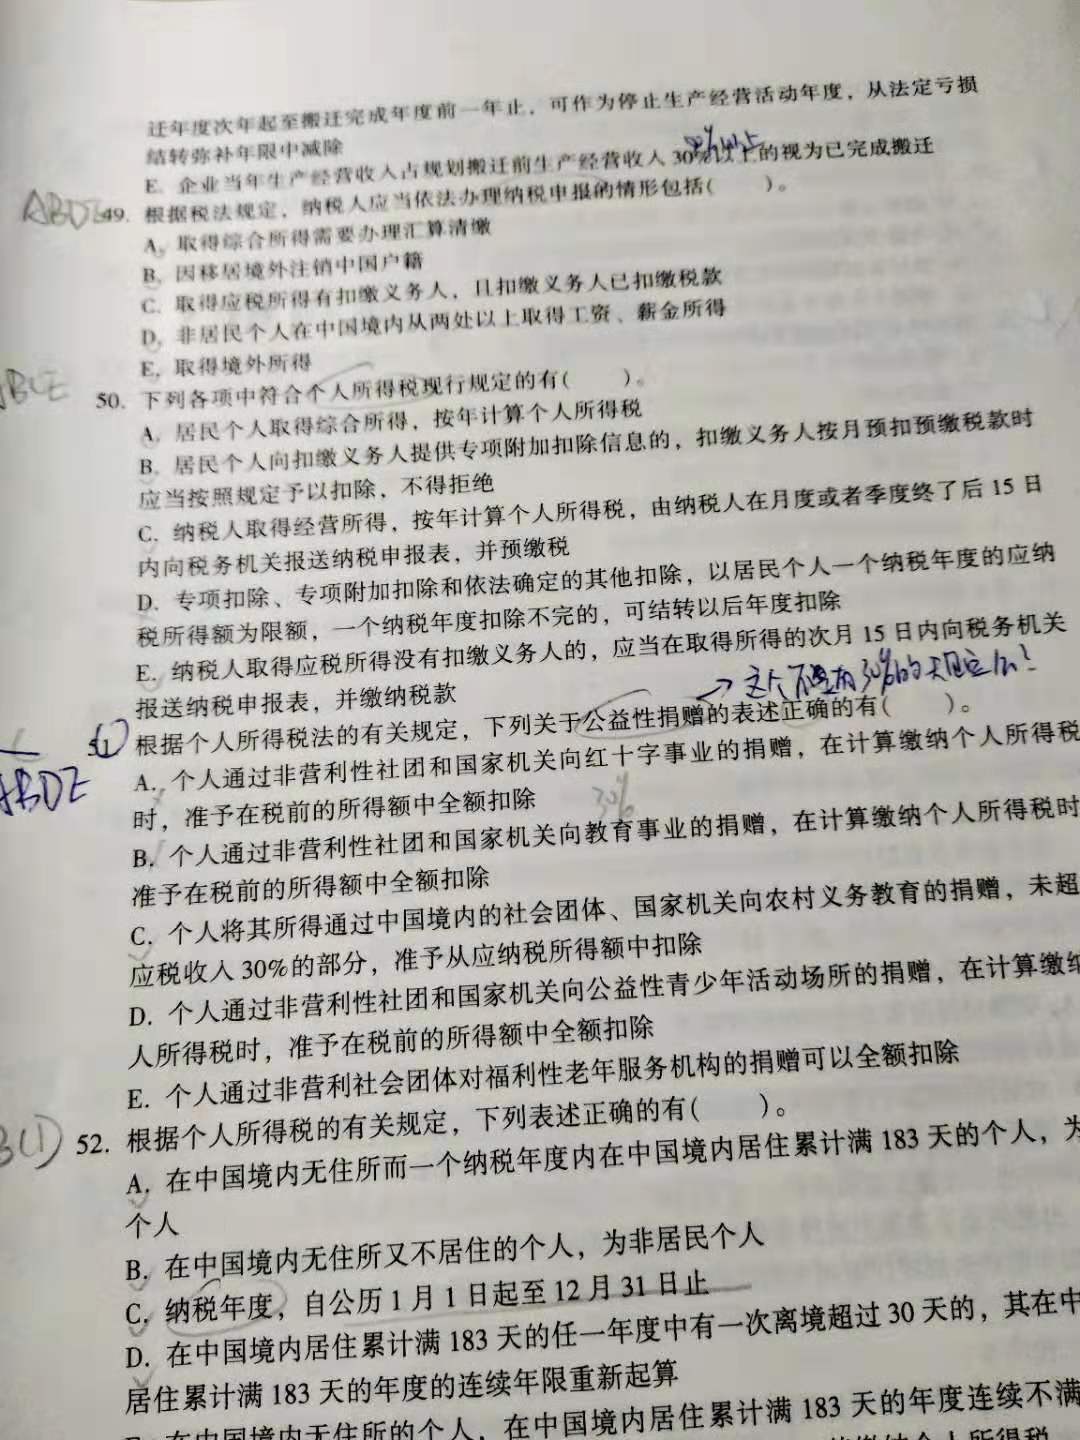 迁年度次年起至搬迁完成年度前一年止，可作为停止生产经营活动年度，从法定亏损
结转弥补年限中减除
E. 企业当年生产经营收入占规划搬迁前生产经营收入30%以上的视为已完成搬迁
ABDE
49. 根据税法规定，纳税人应当依法办理纳税申报的情形包括(　　)。
A. 取得综合所得需要办理汇算清缴
B. 因移居境外注销中国户籍
C. 取得应税所得有扣缴义务人，且扣缴义务人已扣缴税款
D. 非居民个人在中国境内从两处以上取得工资、薪金所得
E. 取得境外所得
BCE
50. 下列各项中符合个人所得税现行规定的有(　　)。
A. 居民个人取得综合所得，按年计算个人所得税
B. 居民个人向扣缴义务人提供专项附加扣除信息的，扣缴义务人按月预扣预缴税款时
应当按照规定予以扣除，不得拒绝
C. 纳税人取得经营所得，按年计算个人所得税，由纳税人在月度或者季度终了后15日
内向税务机关报送纳税申报表，并预缴税
D. 专项扣除、专项附加扣除和依法确定的其他扣除，以居民个人一个纳税年度的应纳
税所得额为限额，一个纳税年度扣除不完的，可结转以后年度扣除
E. 纳税人取得应税所得没有扣缴义务人的，应当在取得所得的次月15日内向税务机关
报送纳税申报表，并缴纳税款
这个不是有30%的规定么?
51. 根据个人所得税法的有关规定，下列关于公益性捐赠的表述正确的有(　　)。
ABDE
A. 个人通过非营利性社团和国家机关向红十字事业的捐赠，在计算缴纳个人所得税
时，准予在税前的所得额中全额扣除
30%
B. 个人通过非营利性社团和国家机关向教育事业的捐赠，在计算缴纳个人所得税时
准予在税前的所得额中全额扣除
C. 个人将其所得通过中国境内的社会团体、国家机关向农村义务教育的捐赠，未超
应税收入30%的部分，准予从应纳税所得额中扣除
D. 个人通过非营利性社团和国家机关向公益性青少年活动场所的捐赠，在计算缴纳
人所得税时，准予在税前的所得额中全额扣除
E. 个人通过非营利社会团体对福利性老年服务机构的捐赠可以全额扣除
52. 根据个人所得税的有关规定，下列表述正确的有(　　)。
A. 在中国境内无住所而一个纳税年度内在中国境内居住累计满183天的个人，为
个人
B. 在中国境内无住所又不居住的个人，为非居民个人
C. 纳税年度，自公历1月1日起至12月31日止
D. 在中国境内居住累计满183天的任一年度中有一次离境超过30天的，其在中
居住累计满183天的年度的连续年限重新起算
在中国境内无住所的个人，在中国境内居住累计满183天的年度连续不满